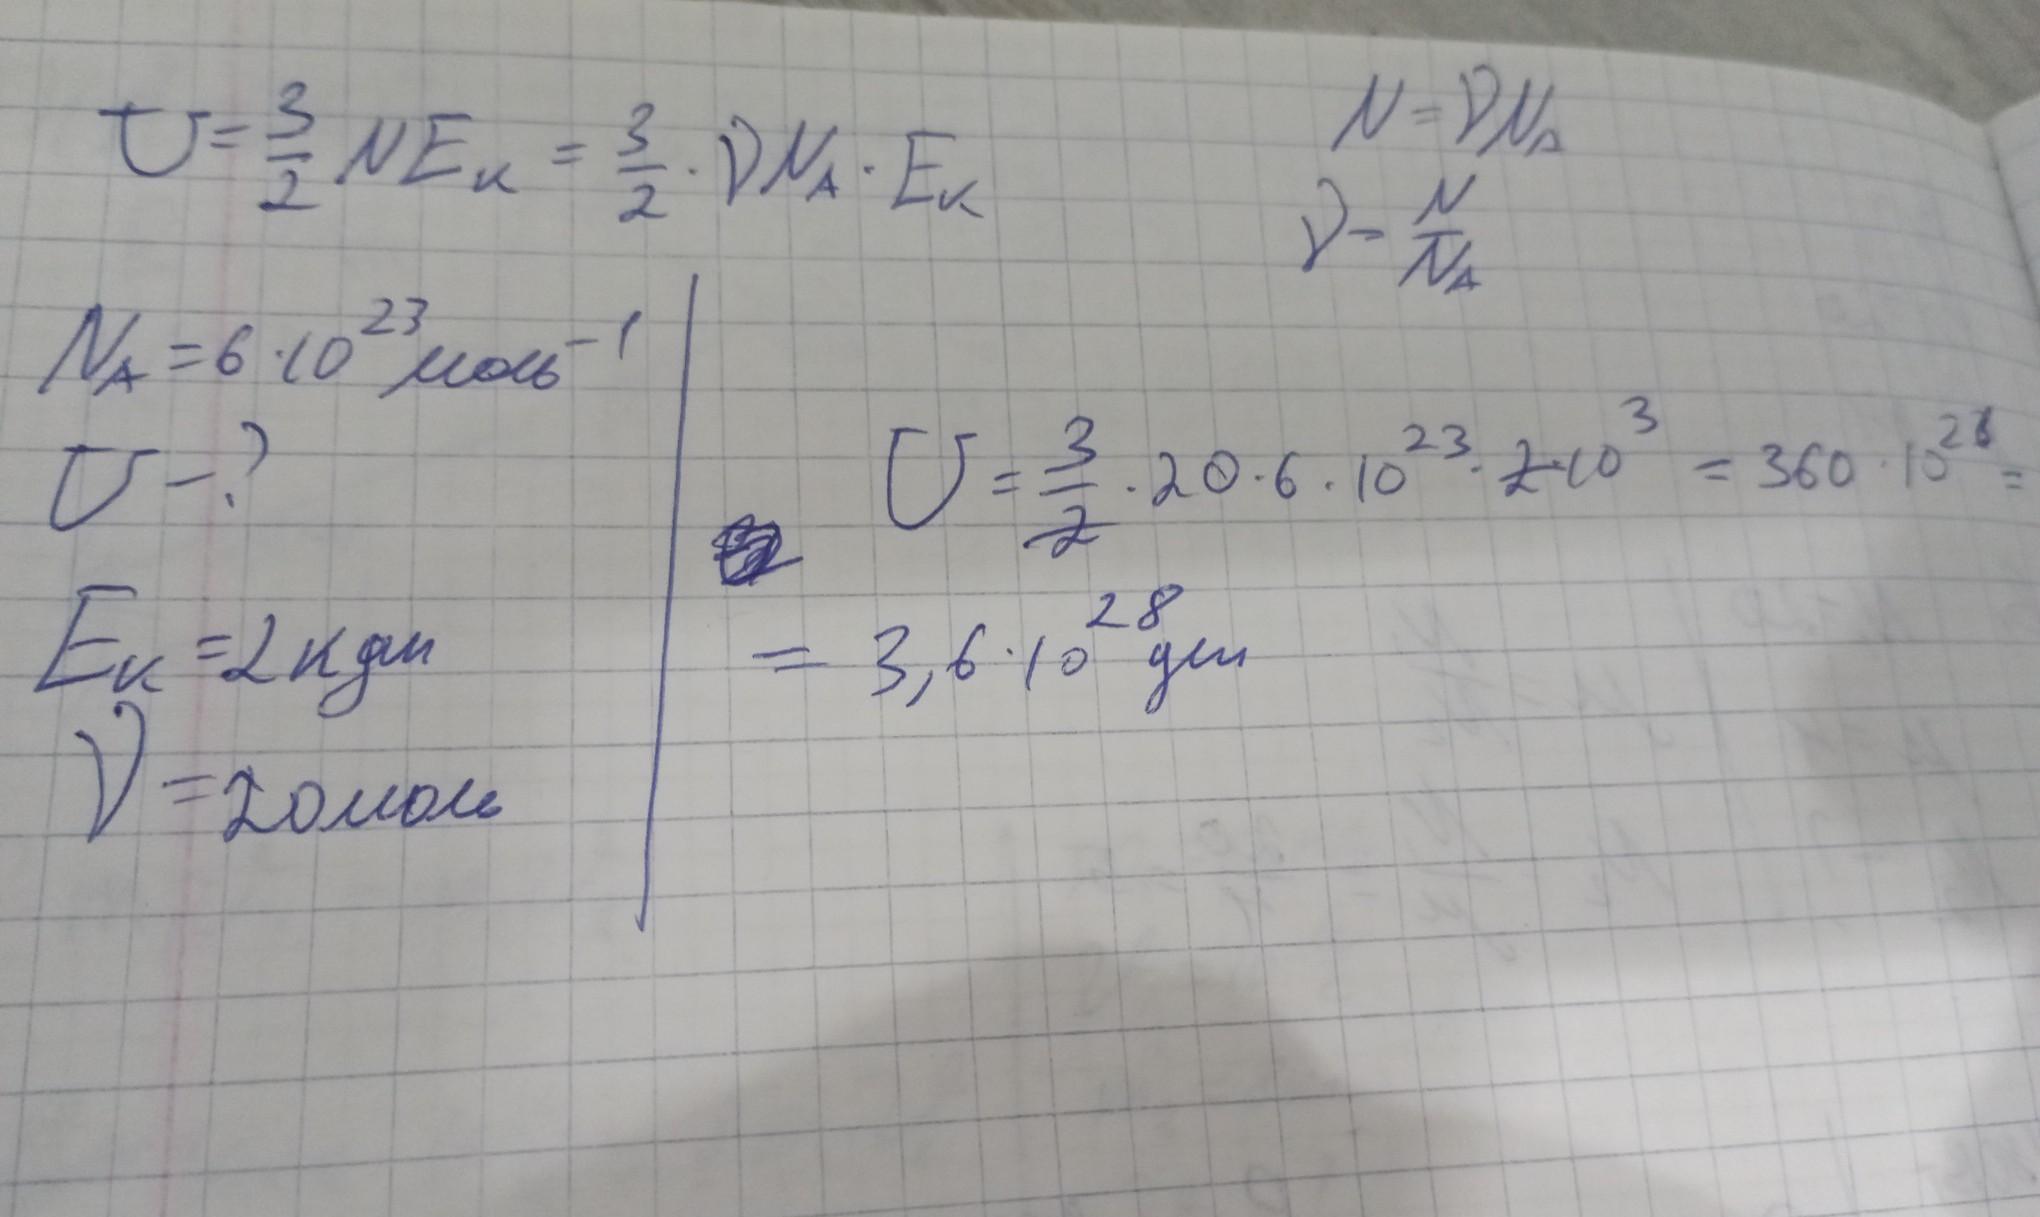 U = 3/2 N Eк = 3/2 · ν N_A · Eк
N = ν N_A
ν = N/N_A
N_A = 6 · 10²³ моль⁻¹
U - ?
Eк = 2 кдж
ν = 20 моль
U = 3/2 · 20 · 6 · 10²³ · 2 · 10³ = 360 · 10²⁶ =
= 3,6 · 10²⁸ дж